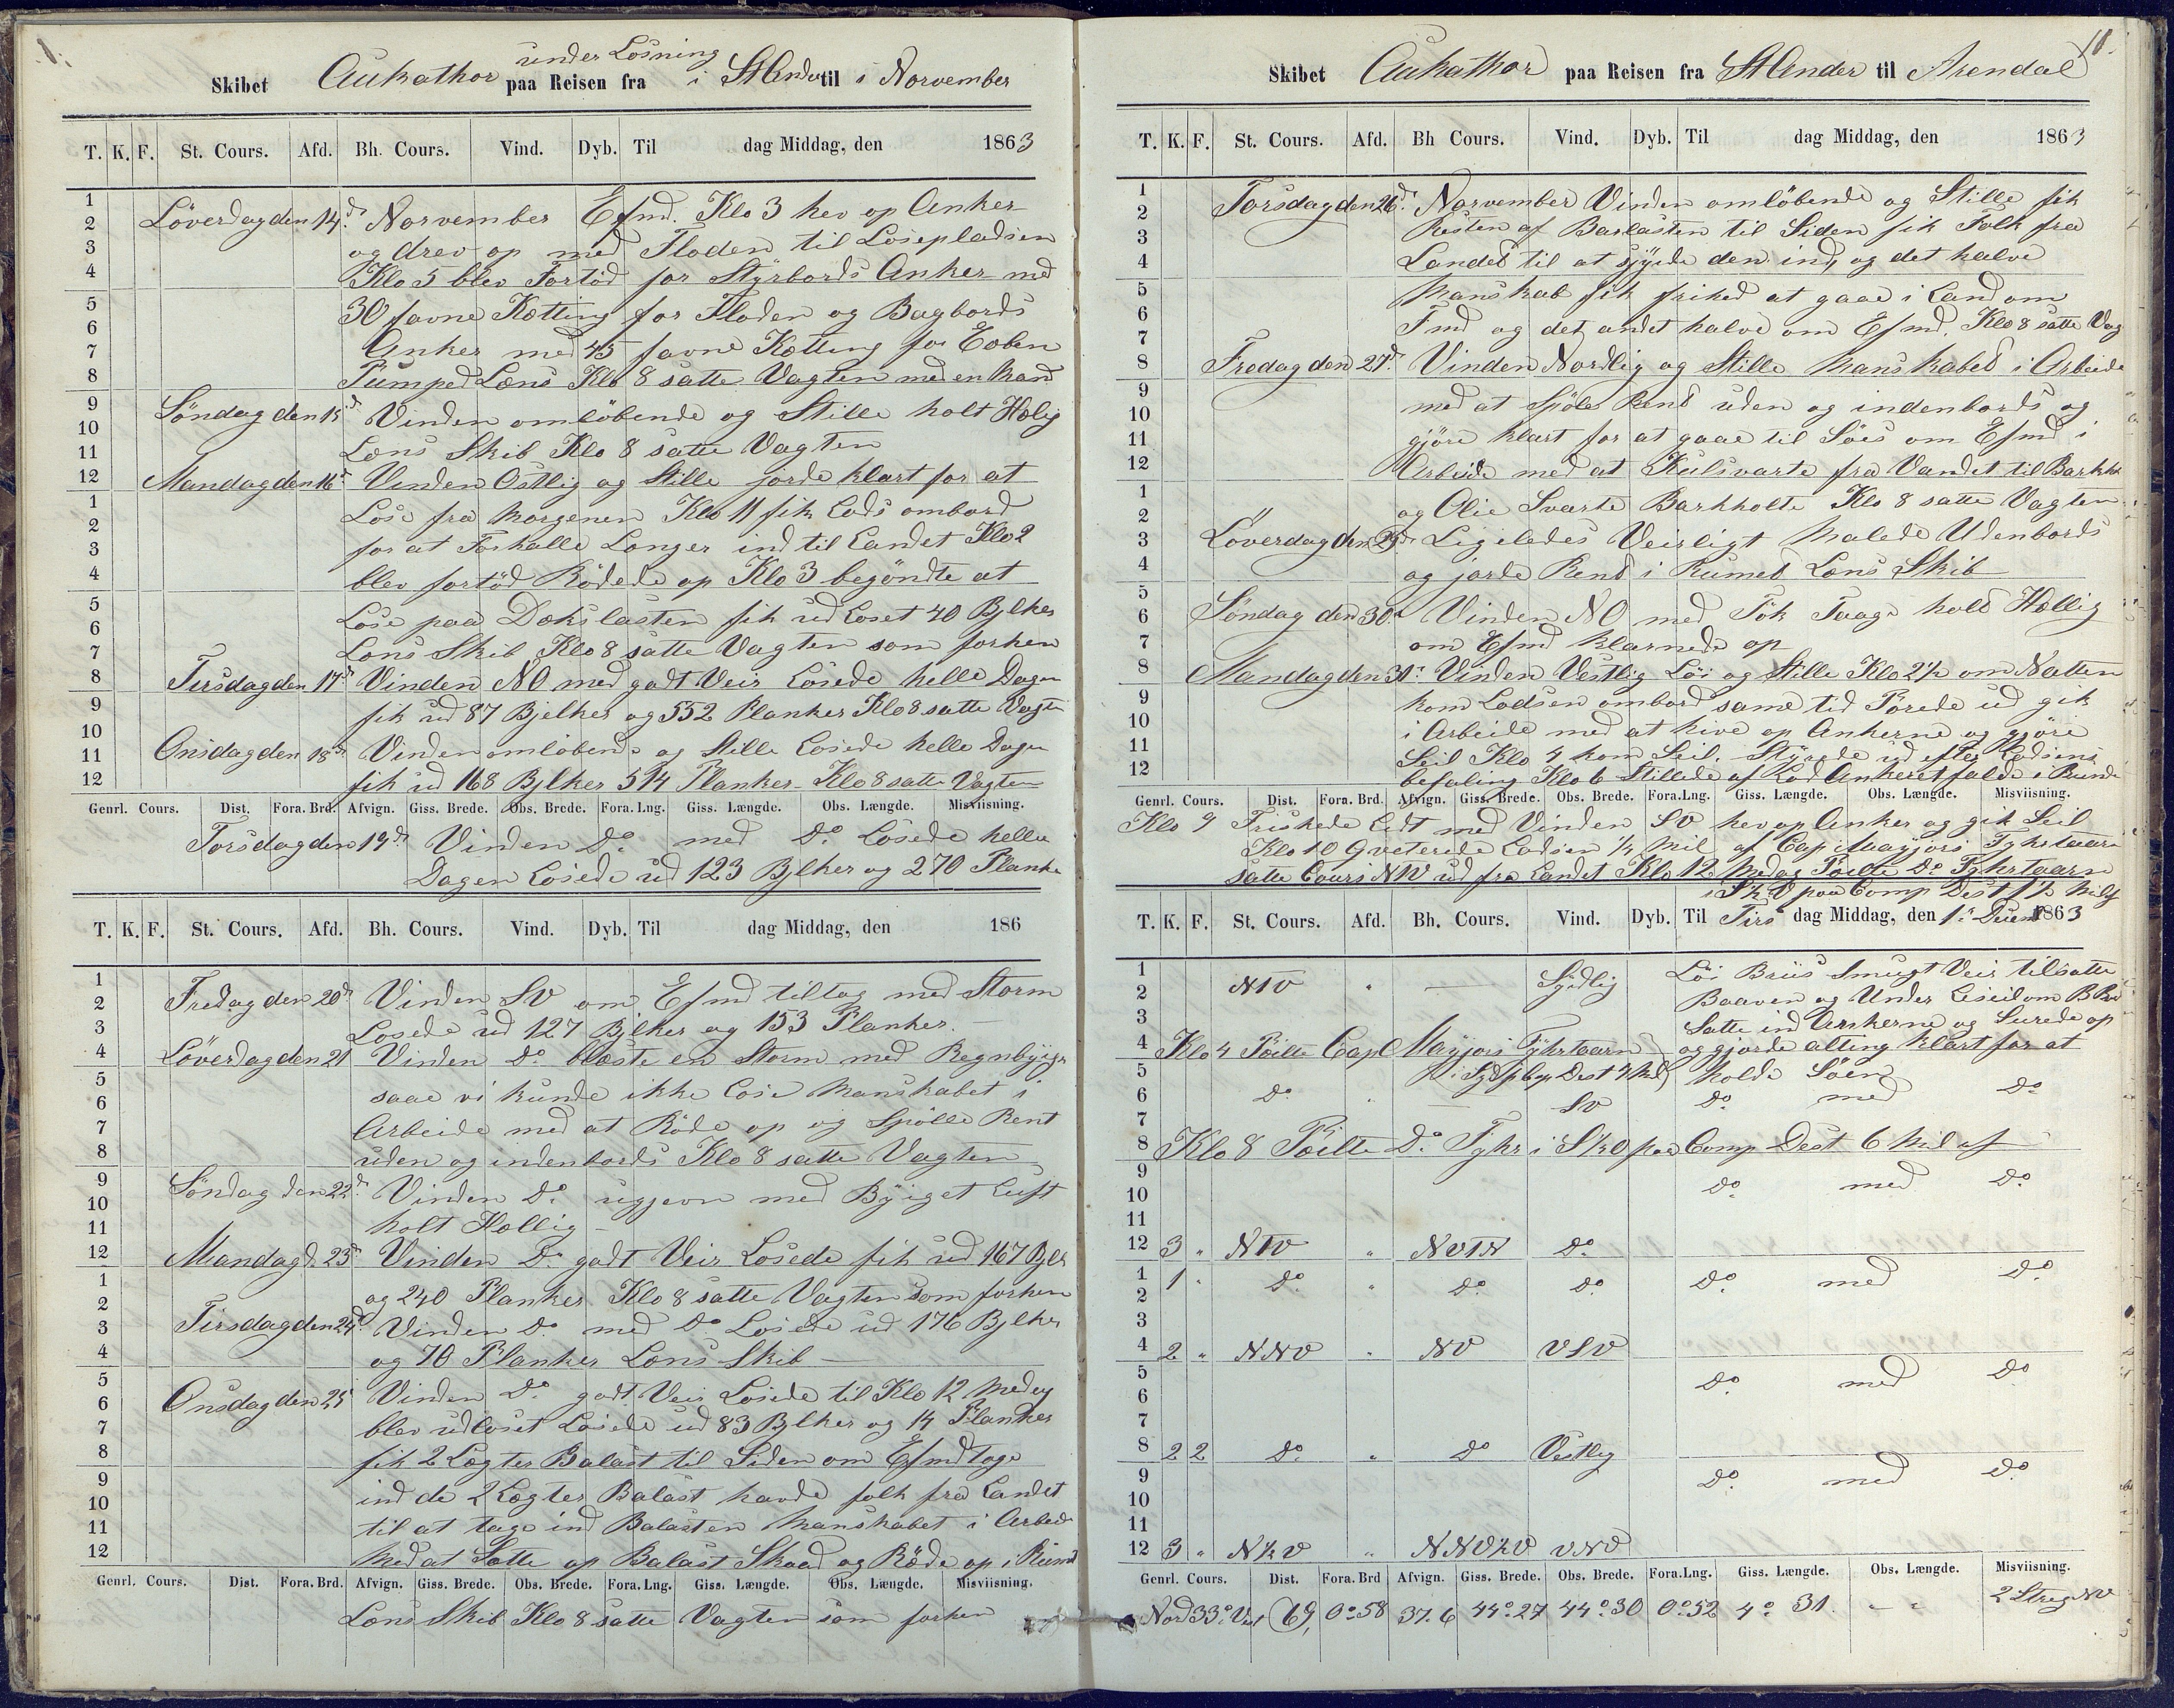 1.
under Losning
Skibet Aukathor paa Reisen fra i St Ander til i Norvember
T. K. F. St. Cours. Afd. Bh. Cours. Vind. Dyb. Til dag Middag, den 1863
1
2
3
4
5
6
7
8
9
10
11
12
1
2
3
4
5
6
7
8
9
10
11
12
Löverdag den 14d. Norvember Efmd. Klo 3 hev op Anker
og drev op med Floden til Losepladsen
Klo 5 blev Fortöd for Styrbords Anker med
30 favne Kætting for Floden og Bagbords
Anker med 45 favne Kætting for Eoben
Pumped Læns Klo 8 satte Vagten med en Mand
Söndag den 15d. Vinden omlöbende og Stille holt Helig
Læns Skib Klo 8 satte Vagten
Mandag den 16d. Vinden Ostlig og Stille jorde klart for at
Lose fra Morgenen Klo 11 fik Lods ombord
for at Forhalle Længer ind til Landet Klo 2
blev fortöd Rödede op Klo 3 begöndte at
Lose paa Dækslasten fik ud Loset 40 Bjlker
Læns Skib Klo 8 satte Vagten som forhen
Tirsdag den 17d. Vinden NO med godt Veir Losede helle Dagen
fik ud 87 Bjelker og 552 Planker Klo 8 satte Vagten
Onsdag den 18d. Vinden omlöbende og Stille Losede helle Dagen
fik ud 168 Bjlker 514 Planker Klo 8 satte Vagten
Genrl. Cours. Dist. Fora. Brd. Afvign. Giss. Brede. Obs. Brede. Fora. Lng. Giss. Længde. Obs. Længde. Misviisning.
Torsdag den 19d. Vinden Do. med Do. Losede helle
Dagen Losede ud 123 Bjlker og 270 Planke
T. K. F. St. Cours. Afd. Bh. Cours. Vind. Dyb. Til dag Middag, den 186
1
2
3
4
5
6
7
8
9
10
11
12
1
2
3
4
5
6
7
8
9
10
11
12
Fredag den 20d. Vinden SV om Efmd tiltog med Storm
Losede ud 127 Bjlker og 153 Planker.
Löverdag den 21 Vinden Do. blæste en Storm med Regnbyiger
saae vi kunde ikke Lose Manskabet i
Arbeide med at Röde op og Spölle Rent
uden og indenbords Klo 8 satte Vagten
Söndag den 22d. Vinden Do. ugjevn med Byiget Luft
holt Hellig
Mandag d. 23d. Vinden Do. godt Veir Losede fik ud 167 Bjlk
og 240 Planker Klo 8 satte Vagten som forhen
Tirsdag den 24d. Vinden Do. med Do. Losede ud 176 Bjlker
og 70 Planker Læns Skib
Onsdag den 25 Vinden Do. godt Veir Losede til Klo 12 Medag
blev udloset Losede ud 83 Bjlker og 14 Planker
fik 2 Lægter Balast til Siden om Efmd toge
ind de 2 Lægter Balast havde folk fra Landet
til at tage ind Balasten Manskabet i Arbeid
Med at Sætte op Balast Skaad og Röde op i Rumet
Genrl. Cours. Dist. Fora. Brd. Afvign. Giss. Brede. Obs. Brede. Fora. Lng. Giss. Længde. Obs. Længde. Misviisning.
Læns Skib Klo 8 satte Vagten som forhen
Skibet Aukathor paa Reisen fra St Ander til Arendal
T. K. F. St. Cours. Afd. Bh Cours. Vind. Dyb. Til dag Middag, den 1863
1
2
3
4
5
6
7
8
9
10
11
12
1
2
3
4
5
6
7
8
9
10
11
12
Torsdag den 26d. Norvember Vinden omlöbende og Stille fik
Resten af Barlasten til Siden fik Folk fra
Landet til at ind, og det halve
Manskab fik frihed at gaae i Land om
Fmd og det andet halve om Efmd. Klo 8 satte Vag
Fredag den 27d. Vinden Nordlig og Stille Manskabet i Arbeide
med at Spöle Rent uden og indenbords og
gjöre klart for at gaae til Söes om Efmd i
Arbeide med at Kulsvarte fra Vandet til Barkho
og Olie Svarte Barkholte Klo 8 satte Vagten
Löverdag den Ligeledes Veirligt Malede Udenbords
og jorde Rent i Rumet Læns Skib
Söndag den 30d. Vinden NO med Tök Taage hold Hellig
om Efmd Klarnede op
Mandag den 31d. Vinden Vestlig Löi og Stille Klo 2½ om Natten
kom Lodsen ombord same tid Pörede ud gik
i Arbeide med at hive op Ankerne og gjöre
Seil Klo 4 kom Seil. Styrede ud efter Lodsens
befaling Klo 6 Stillede af Lod Ankeret falde i Bunde
Genrl. Cours. Dist. Fora. Brd. Afvign. Giss. Brede. Obs. Brede. Fora. Lng. Giss. Længde. Obs. Længde. Misviisning.
Klo 9 Friskede Lidt med Vinden SV hev op Anker og gik Seil
Klo 10 Qveterede Lodsen ¼ Mil af Cap Mayjors Fyhrtaarn
satte Cours NtV ud fra Landet Klo 12 Medag Peilte Do. Fyhrtaarn
i StV paa Comp Dist 1½ Mil
T. K. F. St. Cours. Afd. Bh. Cours. Vind. Dyb. Til Tirs dag Middag, den 1d. 1863
1
2
3
4
5
6
7
8
9
10
11
12
1
2
3
4
5
6
7
8
9
10
11
12
NtV " — Sydlig Löi Briis Smugt Veir tilsatte
Boaven og Under Leiseil om B
Satte ind Ankerne og Surede op
Klo 4 Peilte Cap Mayjors Fyhrtaarn og gjorde alting klart for at
holde Söen
Do. " — SV Do. med Do.
Klo 8 Peilte Do. Fyhr i StO paa Comp Dist 6 Mil af
Do. med Do.
3 " NtV " NVtN Do.
1 " Do. " Do. Do. Do. med Do.
2 " NNV " NV VSV
Do. med Do.
2 2 Do. " Do Vestlig
Do. med Do.
3 " N½V " NNV½V VNV
Genrl. Cours. Dist. Fora. Brd Afvign. Giss. Brede. Obs. Brede. Fora. Lng. Giss. Længde. Obs. Længde. Misviisning.
Nord 33° Vest 69, 0°58 37.6 44°27 44°30 0°52 4° 31. - " 2 Streg NV